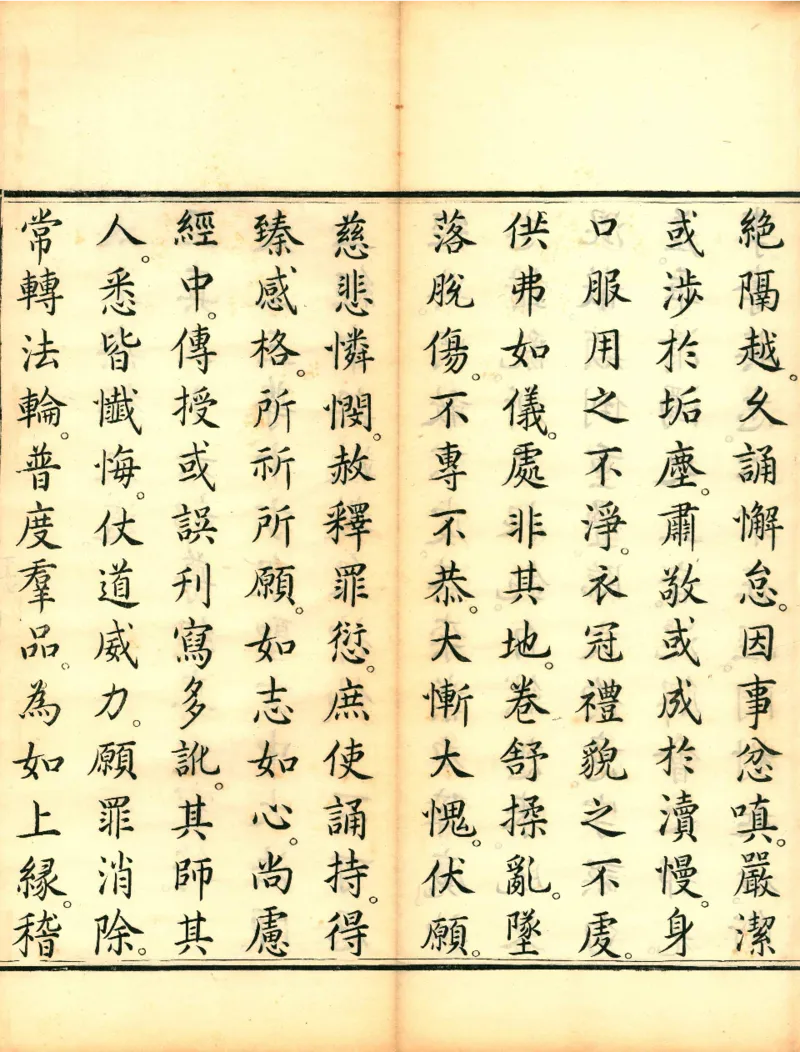 絶隔越。久誦懈怠。因事忿嗔。嚴潔
或渉於垢塵。肅敬或成於瀆慢。身
口服用之不淨。衣冠禮貌之不虔。
供弗如儀。處非其地。卷舒揉亂。墜
落脫傷。不專不恭。大慚大愧。伏願。
慈悲憐憫。赦釋罪愆。庶使誦持。得
臻感格。所祈所願。如志如心。尚慮
經中。傳授或誤刋寫多訛。其師其
人。悉皆懺悔。仗道威力。願罪消除。
常轉法輪。普度羣品。為如上緣。稽